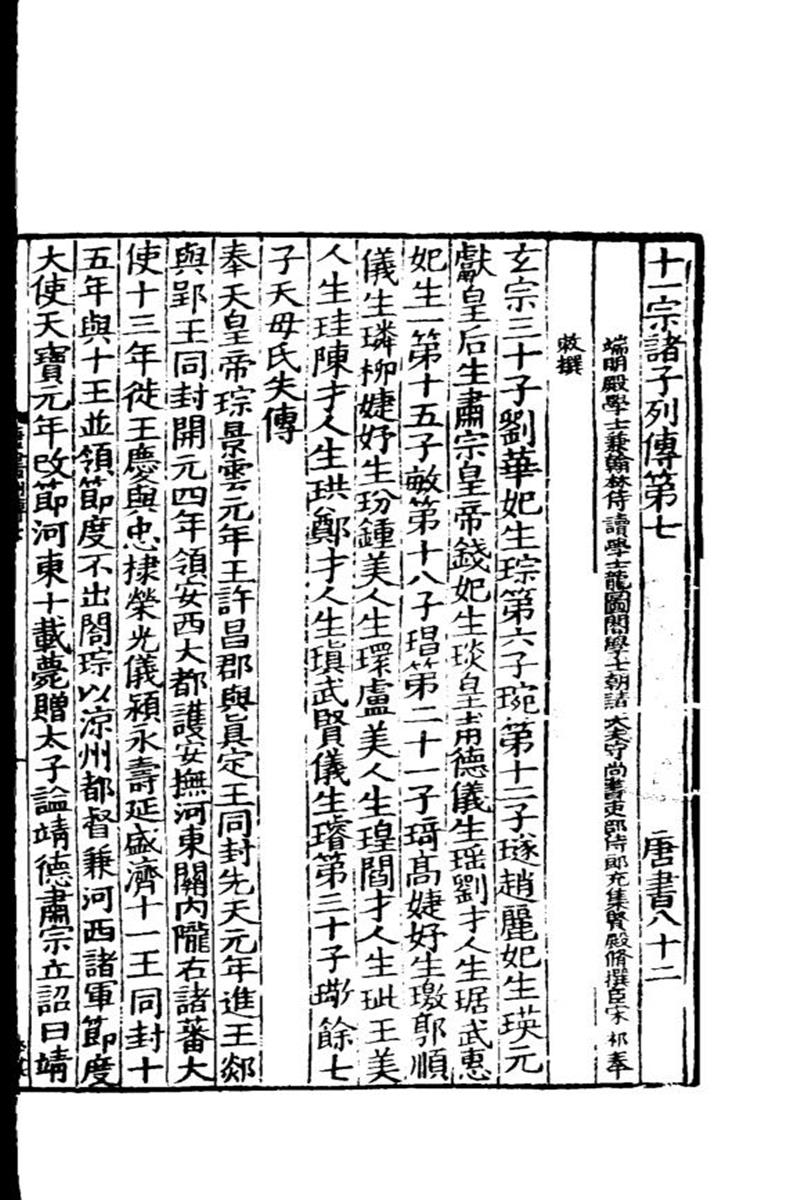 十一宗諸子列傳第七 唐書八十二
端明殿學士兼翰林侍讀學士龍圖閣學士朝請大夫守尚書吏部侍郎充集賢殿脩撰臣宋祁奉
敕撰
玄宗三十子劉華妃生琮第六子琬第十二子璲趙麗妃生瑛元
獻皇后生肅宗皇帝錢妃生琰皇甫德儀生瑶劉才人生琚武惠
妃生一第十五子敏第十八子琩第二十一子琦高婕妤生璬郭順
儀生璘柳婕妤生玢鍾美人生環盧美人生瑝閻才人生玼王美
人生珪陳才人生珙鄭才人生瑱武賢儀生璿第三十子璥餘七
子夭母氏失傳
奉天皇帝琮景雲元年王許昌郡與眞定王同封先天元年進王郯
與郢王同封開元四年領安西大都護安撫河東關內隴右諸蕃大
使十三年徙王慶與忠棣榮光儀潁永壽延盛濟十一王同封十
五年與十王並領節度不出閤琮以涼州都督兼河西諸軍節度
大使天寶元年改節河東十載薨贈太子謚靖德肅宗立詔曰靖